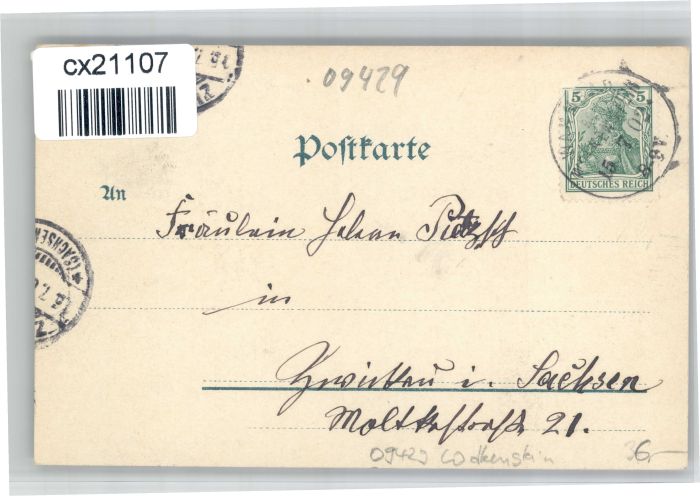 cx21107
09429
Postkarte
5 5
DEUTSCHES REICH
An
Fräulein Helene Pietzsch
in
Zwickau i. Sachsen
Moltkestraße 21.
09429 Wolkenstein
36,-
(SACHSEN)